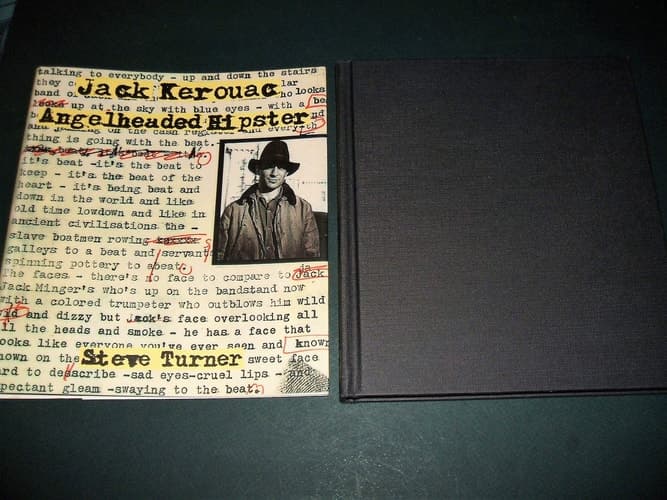 talking to everybody - up and down the stairs
they c lar
Jack Kerouac
band o ho looks
up at the sky with blue eyes - with a be
Angelheaded Hipster
nd
on the cash regis and every th
thing is going with the beat.
it's beat -it's the beat to
keep - it's the beat of the
heart - it's being beat and
down in the world and like
old time lowdown and like in
ancient civilisations the -
slave boatmen rowing
galleys to a beat and servants
spinning pottery to abeat.
The faces - there's no face to compare to Jack
Jack Minger's who's up on the bandstand now
with a colored trumpeter who outblows him wild
and dizzy but Jack's face overlooking all
ll the heads and smoke - he has a face that
ooks like everyone you've ever seen and known
nown on the sweet face
Steve Turner
rd to describe -sad eyes-cruel lips - and
pectant gleam -swaying to the beat.